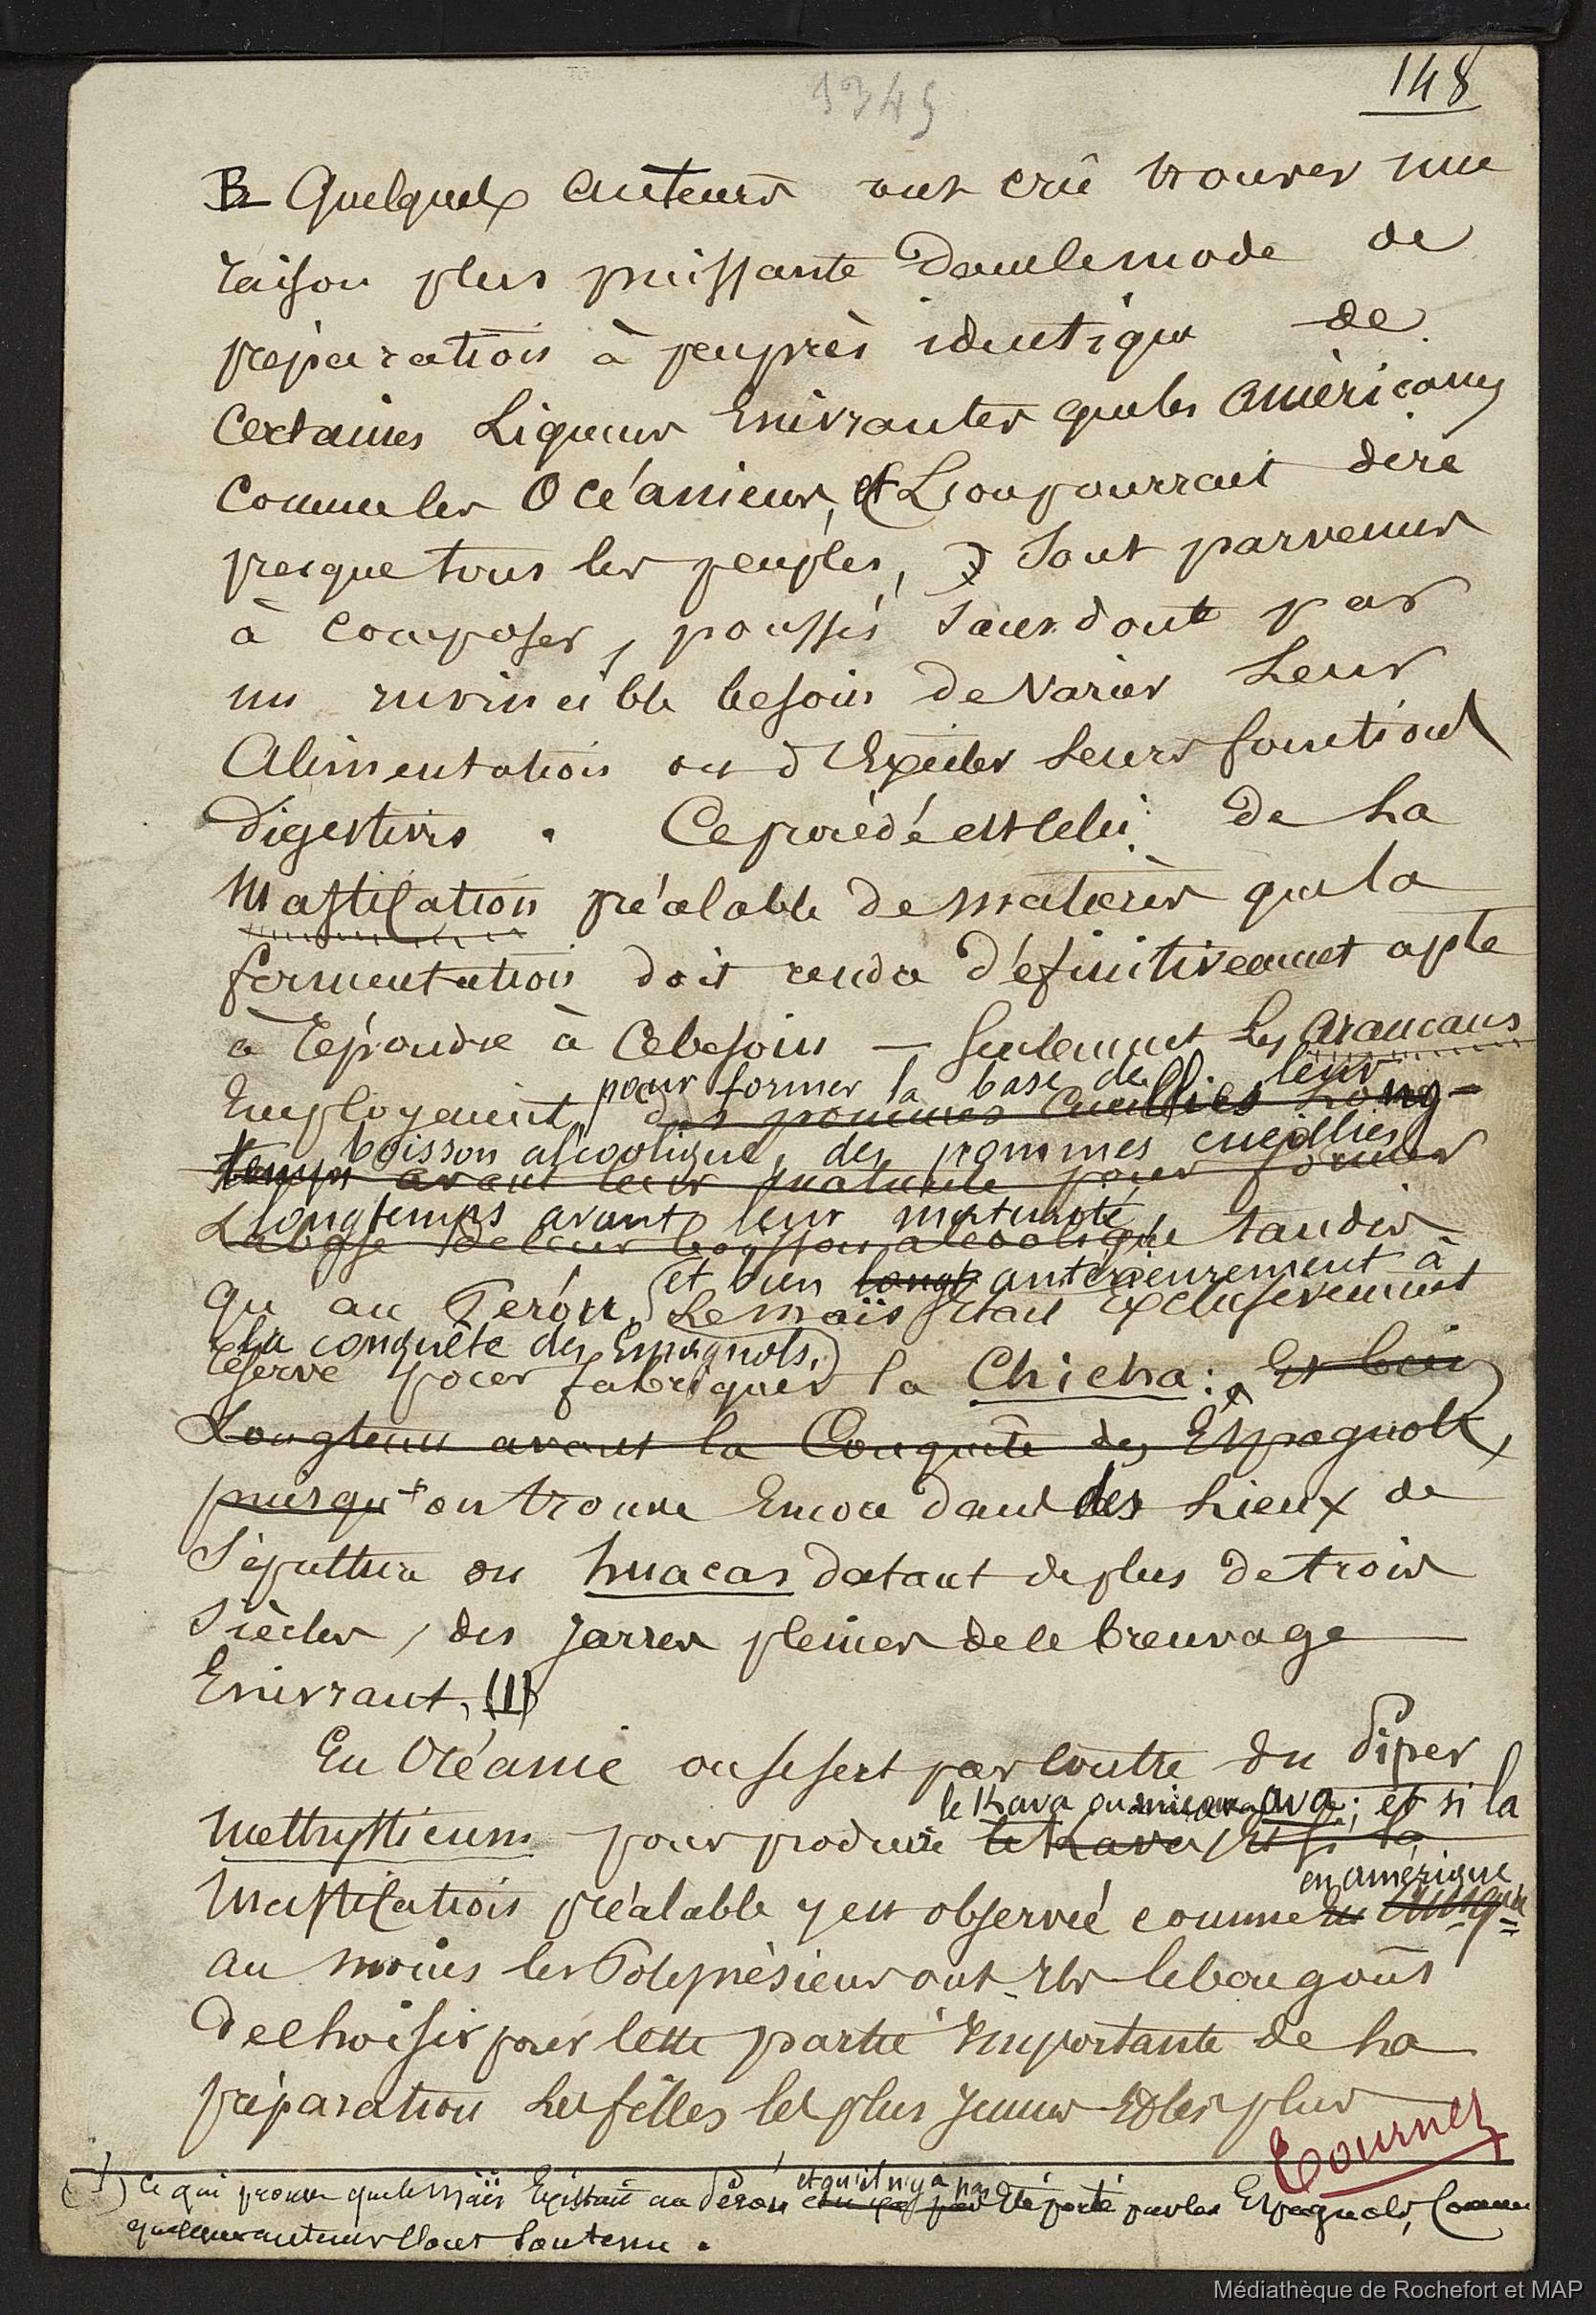 1345
148
B Quelques auteurs ont crû trouver une
raison plus puissante dans le mode de
préparation à peu près identique de
certaines Liqueurs Enivrantes que les américains
comme les Océaniens, et (L'on pourrait dire
presque tous les peuples,) sont parvenus
à composer, poussés sans doute par
un invincible besoin de varier Leur
Alimentation ou d'Exciter Leurs fonctions
digestives. Ce procédé est celui de La
Mastication préalable de matières que la
fermentation doit rendre définitivement apte
à répondre à ce besoin — seulement les araucans
pour former la base de leur
Employaient des pommes cueillies Long-
boisson alcoolique, des pommes cueillies
temps avant leur maturité pour former
longtemps avant leur maturité,
La base de leur boisson alcoolique tandis
(et bien longt antérieurement à
qu'au Pérou, Le maïs était Exclusivement
la conquête des Espagnols,)
réservé pour fabriquer la Chicha: Et bien
Longtems avant la Conquête des Espagnols,
puisqu'on trouve Encore dans les Lieux de
Sépulture ou huacas datant de plus de trois
siècles, des Jarres pleines de ce breuvage
Enivrant. (1)
En Océanie on se sert par contre du Piper
le Kava ou ava; et si la
methysticum pour produire le Kava, Et si la
en amérique
Mastication préalable y est observée comme
au moins les Polynésiens ont-ils le bon goût
de choisir pour cette partie importante de La
préparation Les filles les plus Jeunes Et les plus
Tournez
(1) Ce qui prouve que le maïs Existait au Pérou et qu'il n'y a pas été porté par les Espagnols, Comme
quelques auteurs l'ont soutenu.
Médiathèque de Rochefort et MAP